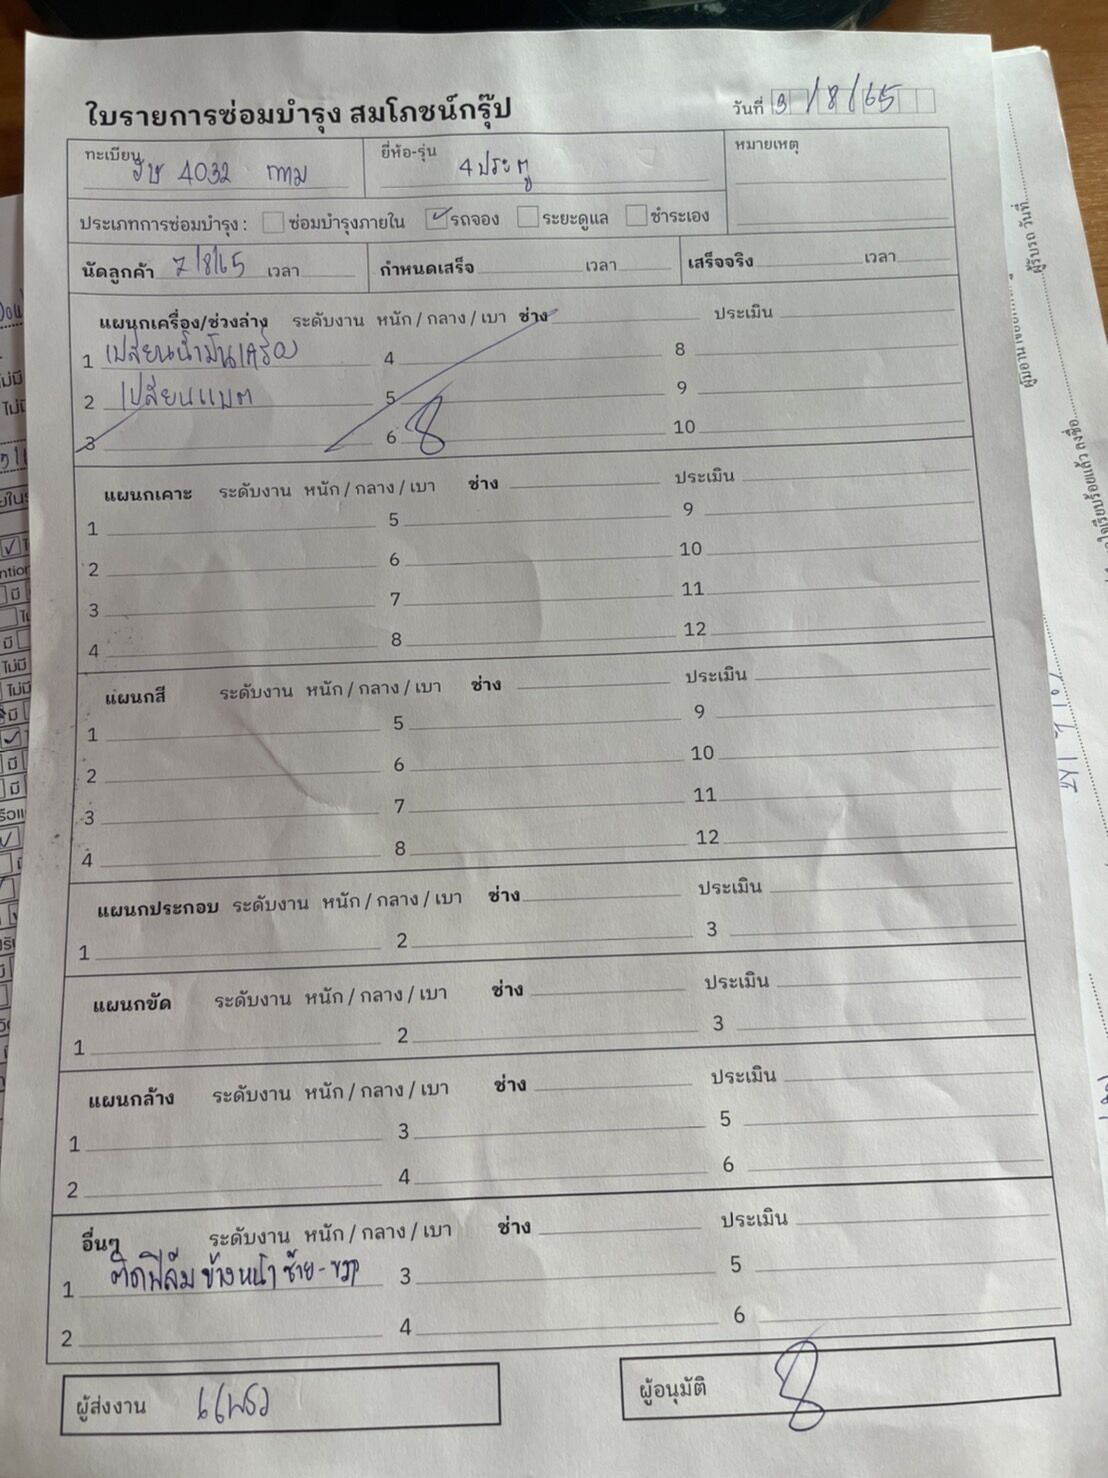 ใบรายการซ่อมบำรุง สมโภชน์กรุ๊ป
วันที่ 3/8/65
ทะเบียน 4032 กทม ยี่ห้อ-รุ่น 4 ประตู หมายเหตุ
ประเภทการซ่อมบำรุง : ซ่อมบำรุงภายใน ✓ รถจอง ระยะดูแล ชำระเอง
นัดลูกค้า 7/8/65 เวลา กำหนดเสร็จ เวลา เสร็จจริง เวลา
แผนกเครื่อง/ช่วงล่าง ระดับงาน หนัก / กลาง / เบา ช่าง ประเมิน
1 เปลี่ยนน้ำมันเครื่อง 4 8
2 เปลี่ยนแบต 5 9
3 6 10
แผนกเคาะ ระดับงาน หนัก / กลาง / เบา ช่าง ประเมิน
1 5 9
2 6 10
3 7 11
4 8 12
แผนกสี ระดับงาน หนัก / กลาง / เบา ช่าง ประเมิน
1 5 9
2 6 10
3 7 11
4 8 12
แผนกประกอบ ระดับงาน หนัก / กลาง / เบา ช่าง ประเมิน
1 2 3
แผนกขัด ระดับงาน หนัก / กลาง / เบา ช่าง ประเมิน
1 2 3
แผนกล้าง ระดับงาน หนัก / กลาง / เบา ช่าง ประเมิน
1 3 5
2 4 6
อื่นๆ ระดับงาน หนัก / กลาง / เบา ช่าง ประเมิน
1 ติดฟิล์ม ข้างหน้า ซ้าย-ขวา 3 5
2 4 6
ผู้ส่งงาน
ผู้อนุมัติ